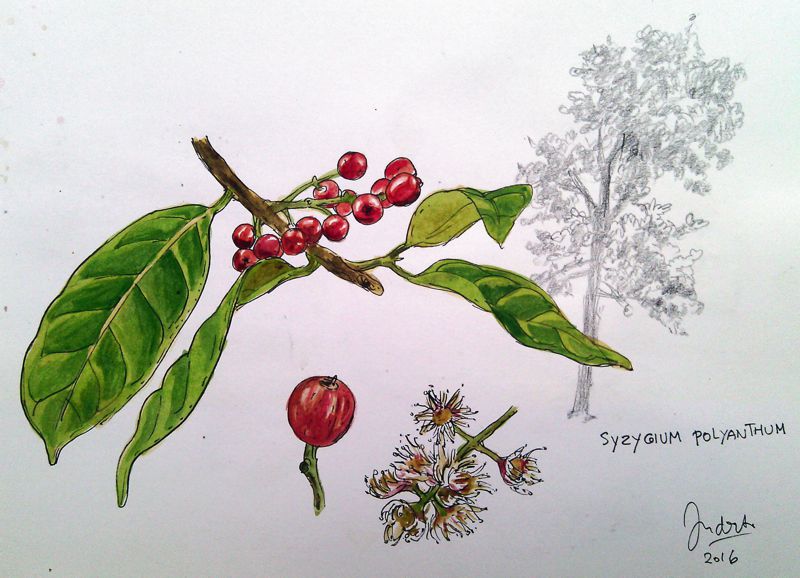 SYZYGIUM POLYANTHUM
2016